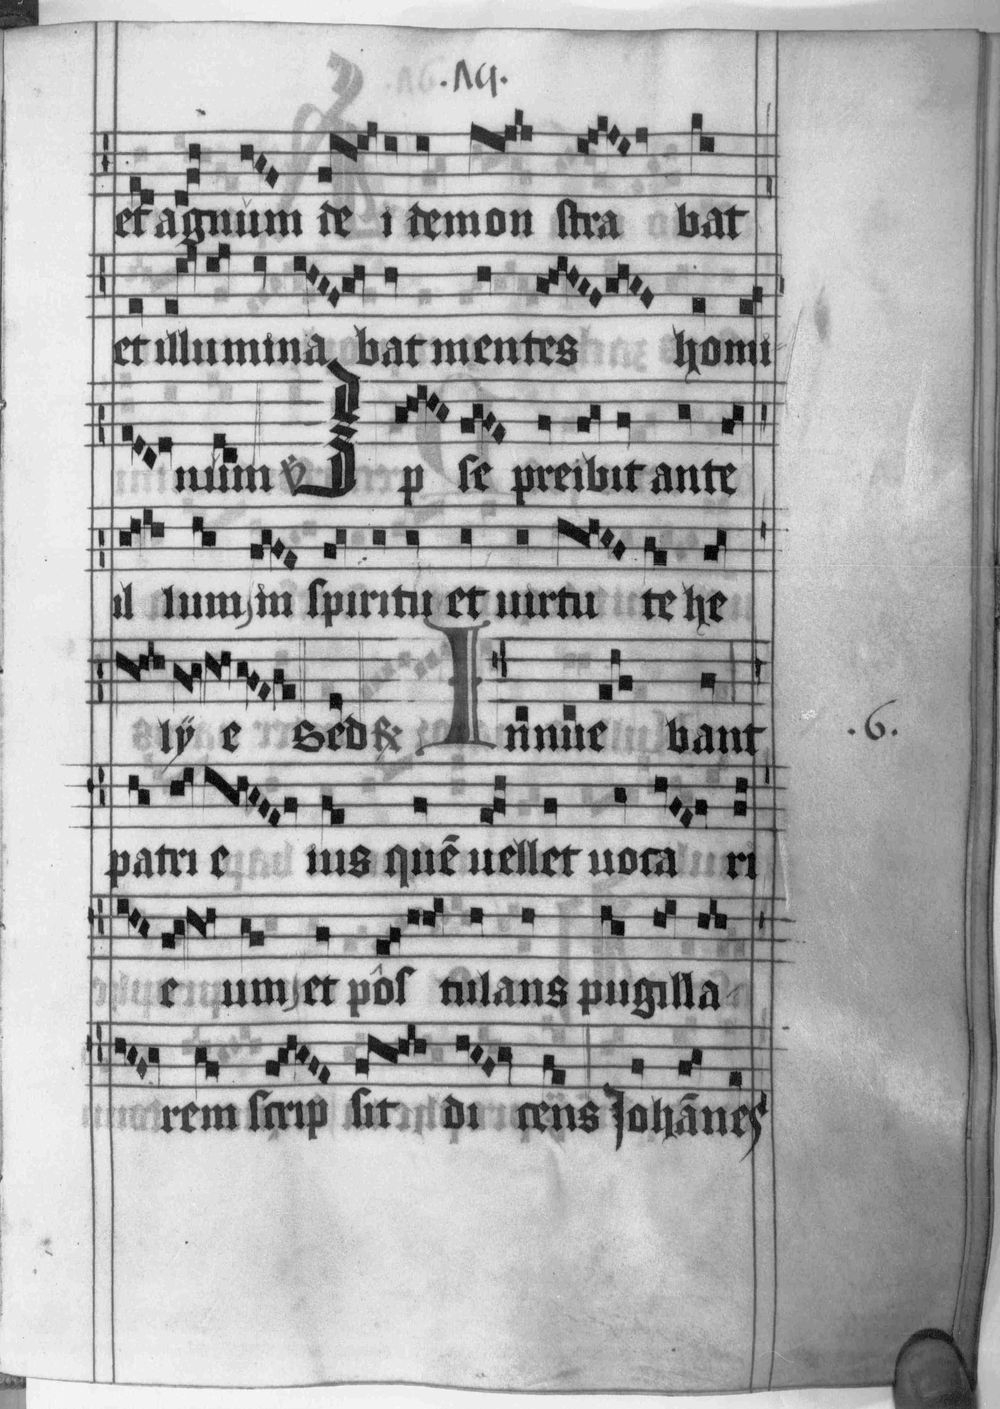 .19.
et agnum de i demon stra bat
et illumina bat mentes homi
num ℣ Ip se preibit ante
il lum in spiritu et uirtu te he
lÿ e Sed & Innue bant
patri e ius quē uellet uoca ri
e um et pôs tulans pugilla
.6.
rem scrip sit di cens Johānes